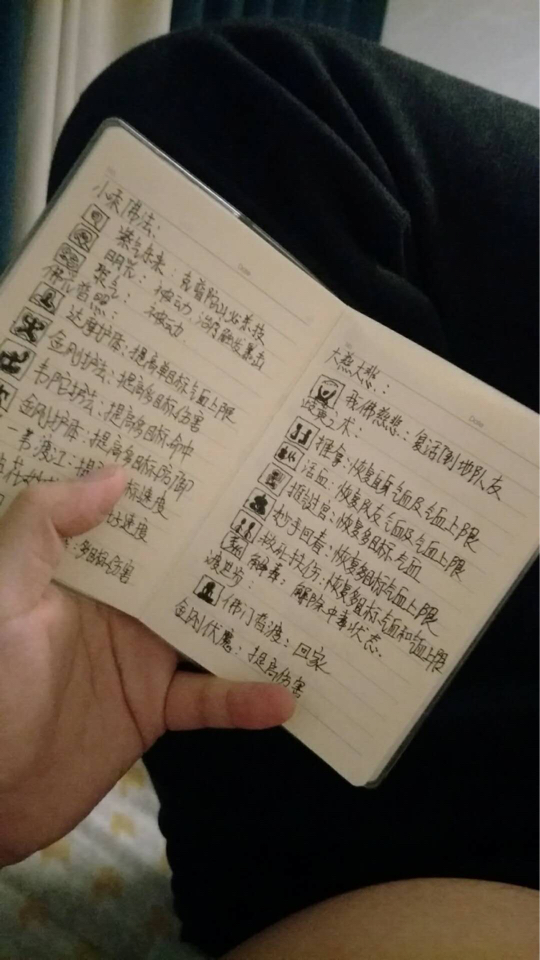 小乘佛法:
紫气东来:
明光: 被动
聚气: 被动
佛心普照:
达摩护体: 提高单目标气血上限
金刚护法: 提高多目标伤害
韦陀护法: 提高多目标命中
金刚护体: 提高多目标防御
一苇渡江: 标速度
速度
多目标伤害
大慈大悲:
我佛慈悲: 复活倒地队友
推拿: 恢复 气血及气血上限
活血: 恢复队友气血及气血上限
推气过宫: 恢复多目标气血
妙手回春: 恢复多目标气血上限
救死扶伤: 恢复多目标气血和气血上限
解毒: 解除中毒状态.
渡世步:
佛门普渡: 回家
金刚伏魔: 提高伤害